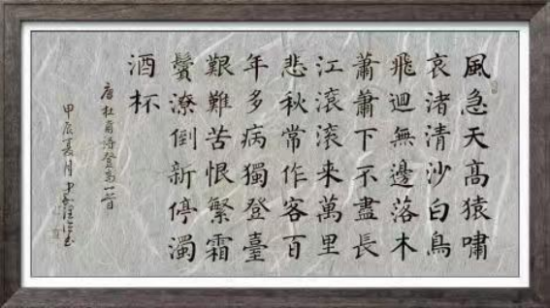 風急天高猿嘯
哀渚清沙白鳥
飛迴無邊落木
蕭蕭下不盡長
江滾滾來萬里
悲秋常作客百
年多病獨登臺
艱難苦恨繁霜
鬢潦倒新停濁
酒杯
唐杜甫詩登高一首
甲辰夏月